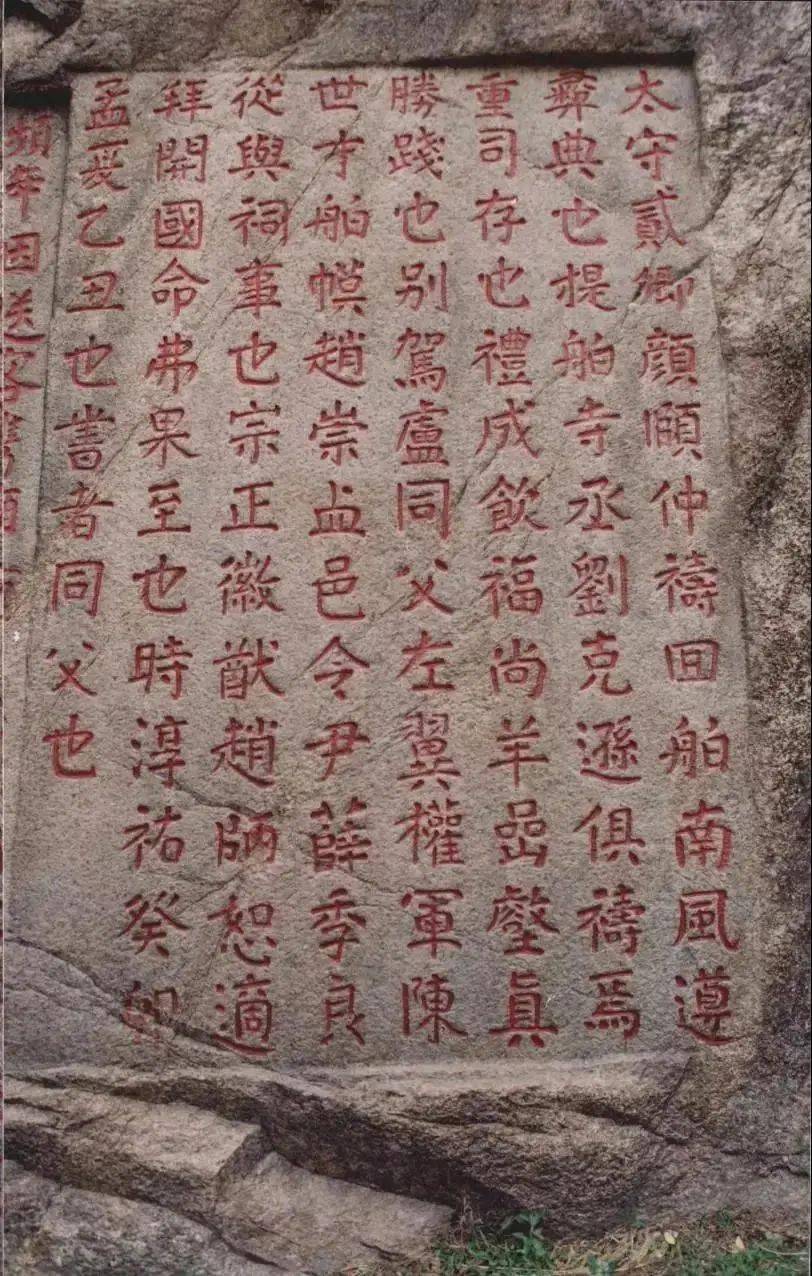 太守貳卿顔頤仲禱回舶南風遵
彝典也提舶寺丞劉克遜俱禱焉
重司存也禮成飲福尚羊嵒壑眞
勝踐也别駕盧同父左翼權軍陳
世才舶幙趙崇盐邑令尹薛季良
從與祠事也宗正徽猷趙師恕適
拜開國命弗果至也時淳祐癸卯
孟夏乙丑也書者同父也
因送客